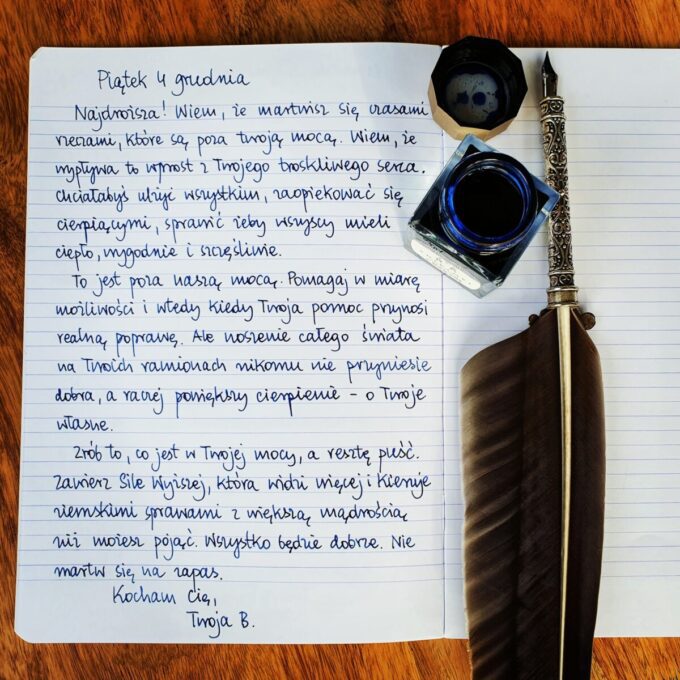 Piątek 4 grudnia
Najdroższa! Wiem, że martwisz się czasami
rzeczami, które są poza twoją mocą. Wiem, że
wypływa to wprost z Twojego troskliwego serca.
Chciałabyś ulżyć wszystkim, zaopiekować się
cierpiącymi, sprawić żeby wszyscy mieli
ciepło, wygodnie i szczęśliwie.
To jest poza naszą mocą. Pomagaj w miarę
możliwości i wtedy kiedy Twoja pomoc przynosi
realną poprawę. Ale noszenie całego świata
na Twoich ramionach nikomu nie przyniesie
dobra, a raczej powiększy cierpienie - o Twoje
własne.
Zrób to, co jest w Twojej mocy, a resztę puść.
Zawierz Sile Wyższej, która widzi więcej i kieruje
ziemskimi sprawami z większą mądrością
niż możesz pojąć. Wszystko będzie dobrze. Nie
martw się na zapas.
Kocham Cię,
Twoja B.